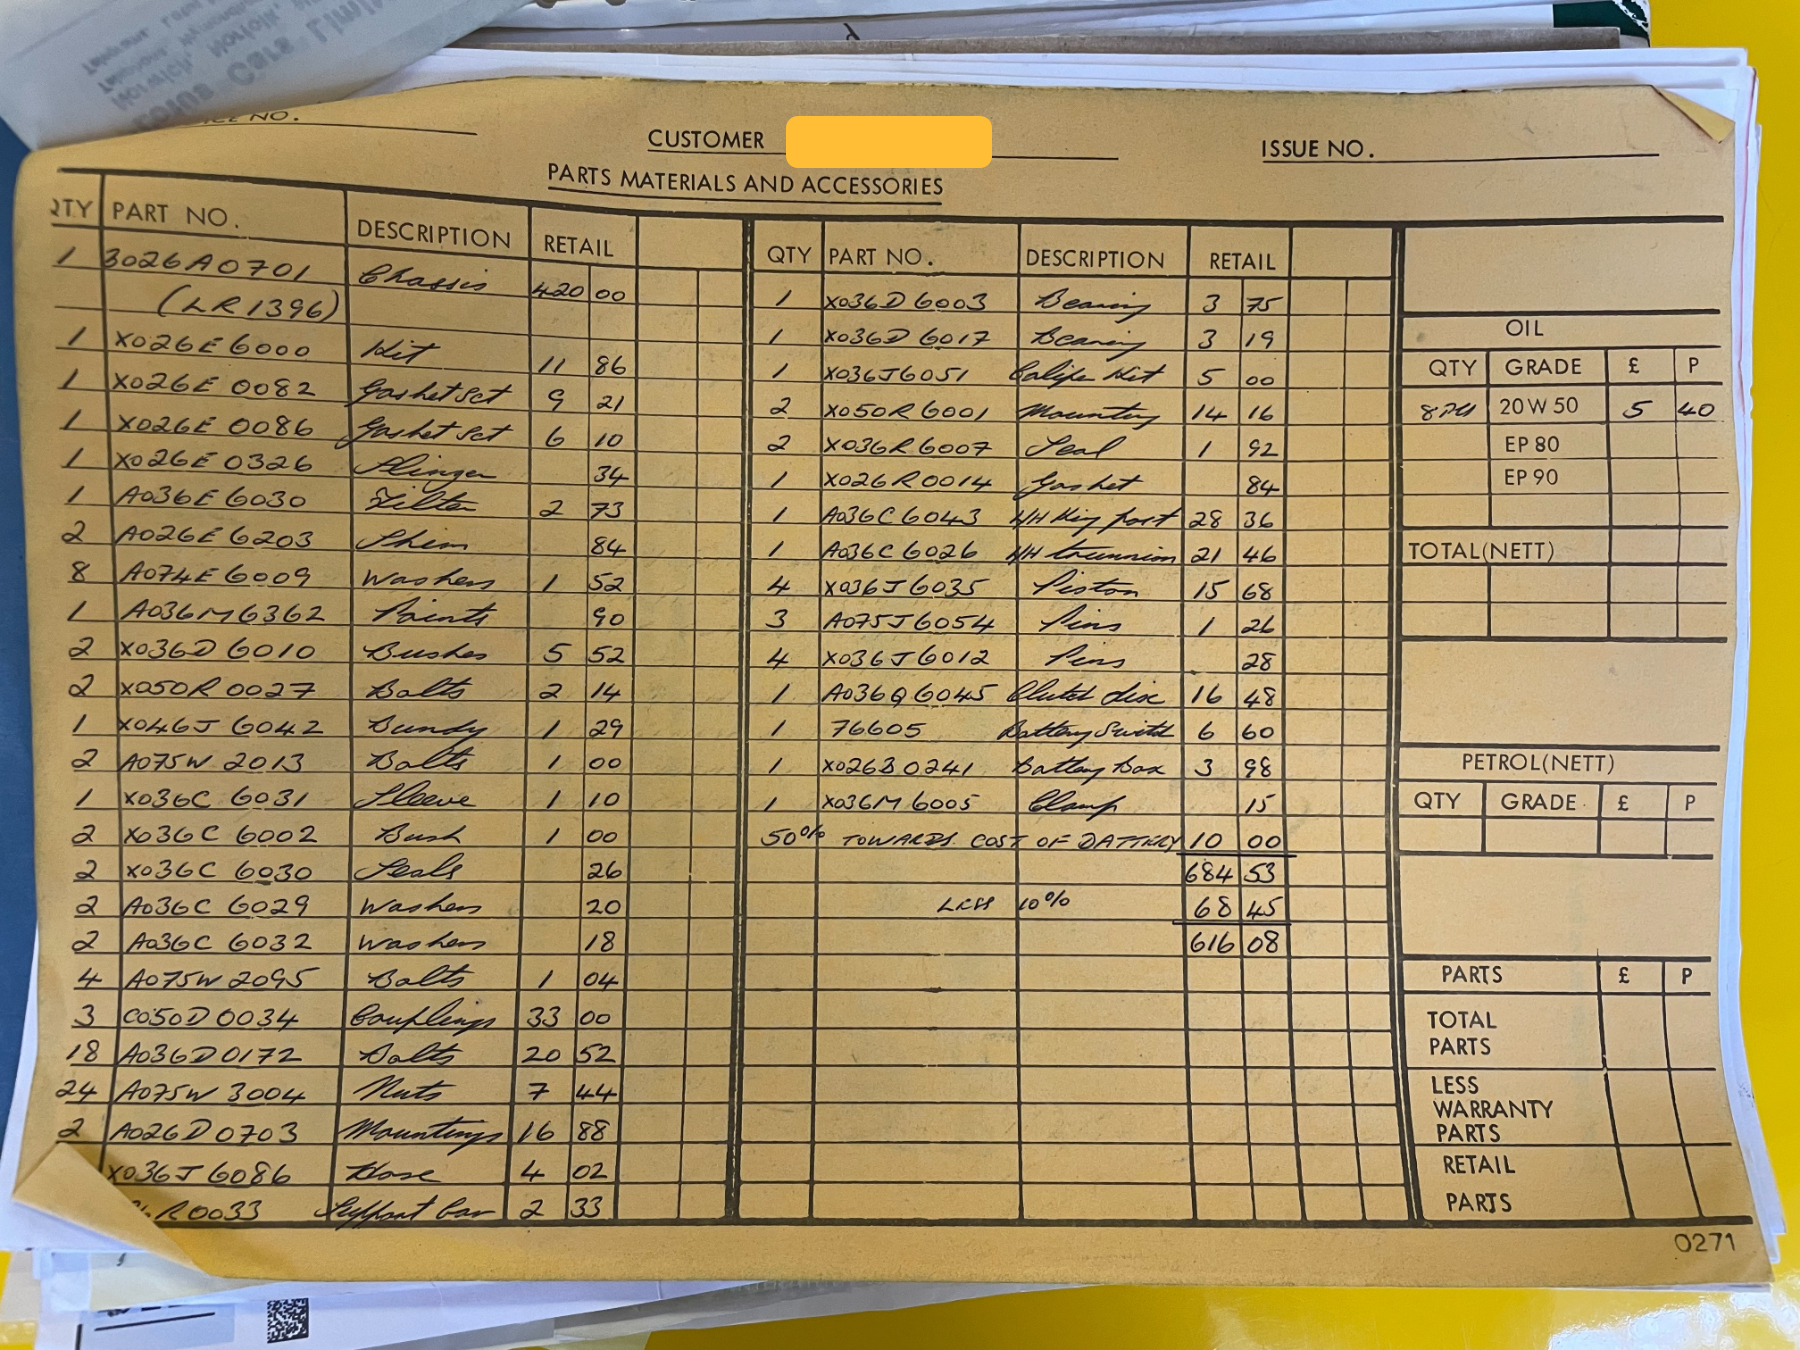 CUSTOMER
ISSUE NO.
PARTS MATERIALS AND ACCESSORIES
QTY PART NO. DESCRIPTION RETAIL
1 3026A0701 Chassis 420 00
(LR1396)
1 X026E6000 Kit 11 86
1 X026E 0082 Gasket Set 9 21
1 X026E 0086 Gasket Set 6 10
1 X026E 0326 Slinger 34
1 A036E6030 Filter 2 73
2 A026E6203 Shim 84
8 A074E6009 Washers 1 52
1 A036M6362 Points 90
2 X036D 6010 Bushes 5 52
2 X050R 0027 Bolts 2 14
1 X046J 6042 Bundy 1 29
2 A075W 2013 Bolts 1 00
1 X036C 6031 Sleeve 1 10
2 X036C 6002 Bush 1 00
2 X036C 6030 Seals 26
2 A036C 6029 Washers 20
2 A036C 6032 Washers 18
4 A075W 2095 Bolts 1 04
3 C050D0034 Couplings 33 00
18 A036D0172 Bolts 20 52
24 A075W 3004 Nuts 7 44
2 A026D0703 Mountings 16 88
X036J6086 Hose 4 02
R0033 Support bar 2 33
QTY PART NO. DESCRIPTION RETAIL
1 X036D6003 Bearing 3 75
1 X036D 6017 Bearing 3 19
1 X036J6051 Caliper Kit 5 00
2 X050R6001 Mounting 14 16
2 X036R6007 Seal 1 92
1 X026R0014 Gasket 84
1 A036C6043 N/H King post 28 36
1 A036C6026 N/H trunnion 21 46
4 X036J6035 Piston 15 68
3 A075J6054 Pins 1 26
4 X036J6012 Pins 28
1 A036Q6045 Clutch disc 16 48
1 76605 Battery Switch 6 60
1 X026B0241 Battery Box 3 98
1 X036M6005 Clamp 15
50% TOWARDS COST OF BATTERY 10 00
684 53
LESS 10% 68 45
616 08
OIL
QTY GRADE £ P
20W50 5 40
EP 80
EP 90
TOTAL(NETT)
PETROL(NETT)
QTY GRADE £ P
PARTS £ P
TOTAL
PARTS
LESS
WARRANTY
PARTS
RETAIL
PARTS
0271